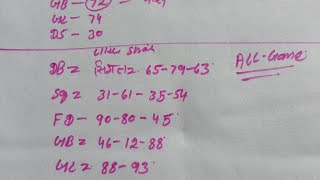 GB = 72
GL - 74
DS - 30
DB = 65-79-63
All-Game
SG = 31-61-35-54
FD - 90-80-45
GB = 46-12-88
GL = 88-93